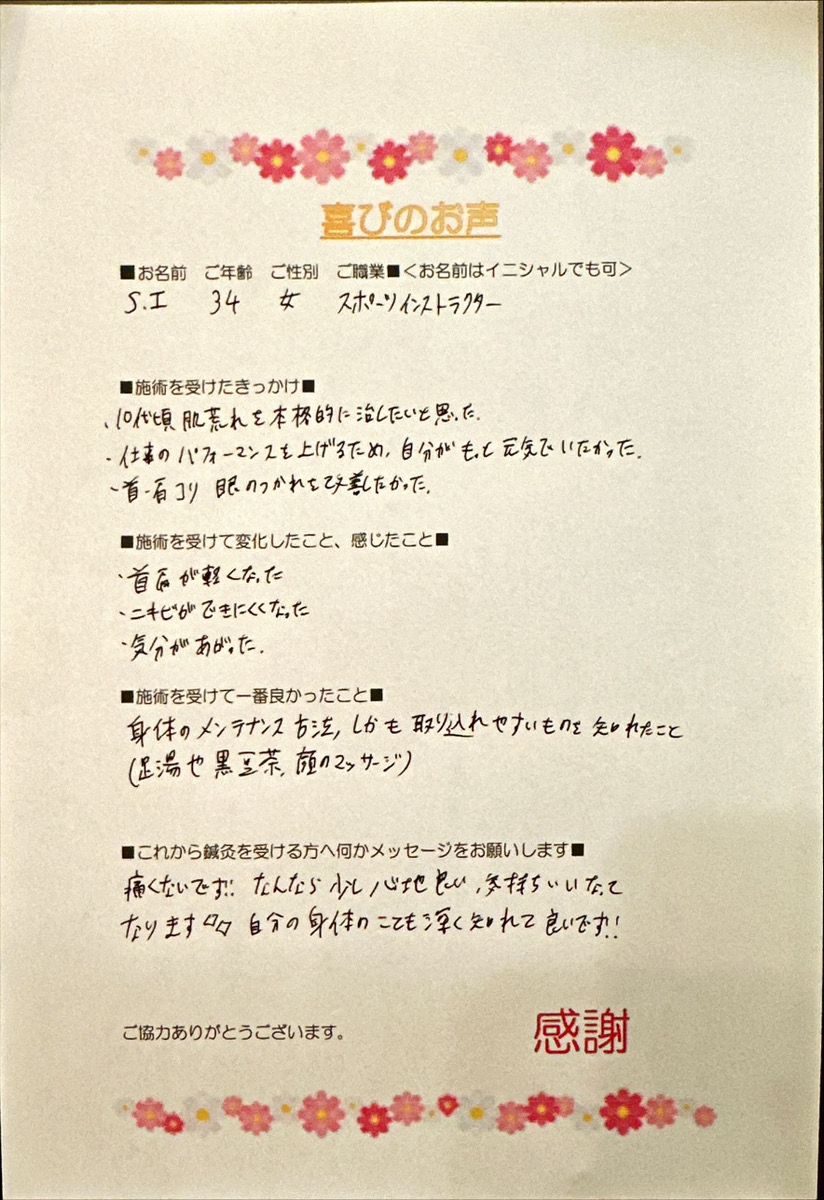 喜びのお声
■お名前 ご年齢 ご性別 ご職業■<お名前はイニシャルでも可>
S.I 34 女 スポーツインストラクター
■施術を受けたきっかけ■
・10代頃 肌荒れを本格的に治したいと思った.
・仕事のパフォーマンスを上げるため, 自分がもっと元気でいたかった.
・首・肩コリ 眼のつかれを改善したかった.
■施術を受けて変化したこと、感じたこと■
・首肩が軽くなった
・ニキビができにくくなった
・気分があがった.
■施術を受けて一番良かったこと■
身体のメンテナンス方法, しかも取り込れやすいものを知れたこと
(足湯や黒豆茶, 顔のマッサージ)
■これから鍼灸を受ける方へ何かメッセージをお願いします■
痛くないです!! なんなら少し心地良い, 気持ちいいなって
なります 自分の身体のことも深く知れて良いです!!
ご協力ありがとうございます。
感謝